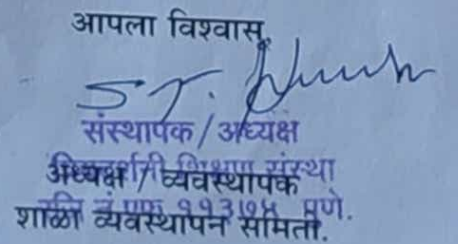 आपला विश्वासू,
S. J.
संस्थापक / अध्यक्ष
शिक्षण संस्था
अध्यक्ष / व्यवस्थापक
एफ ११३७५ पुणे.
शाळा व्यवस्थापन समिती.